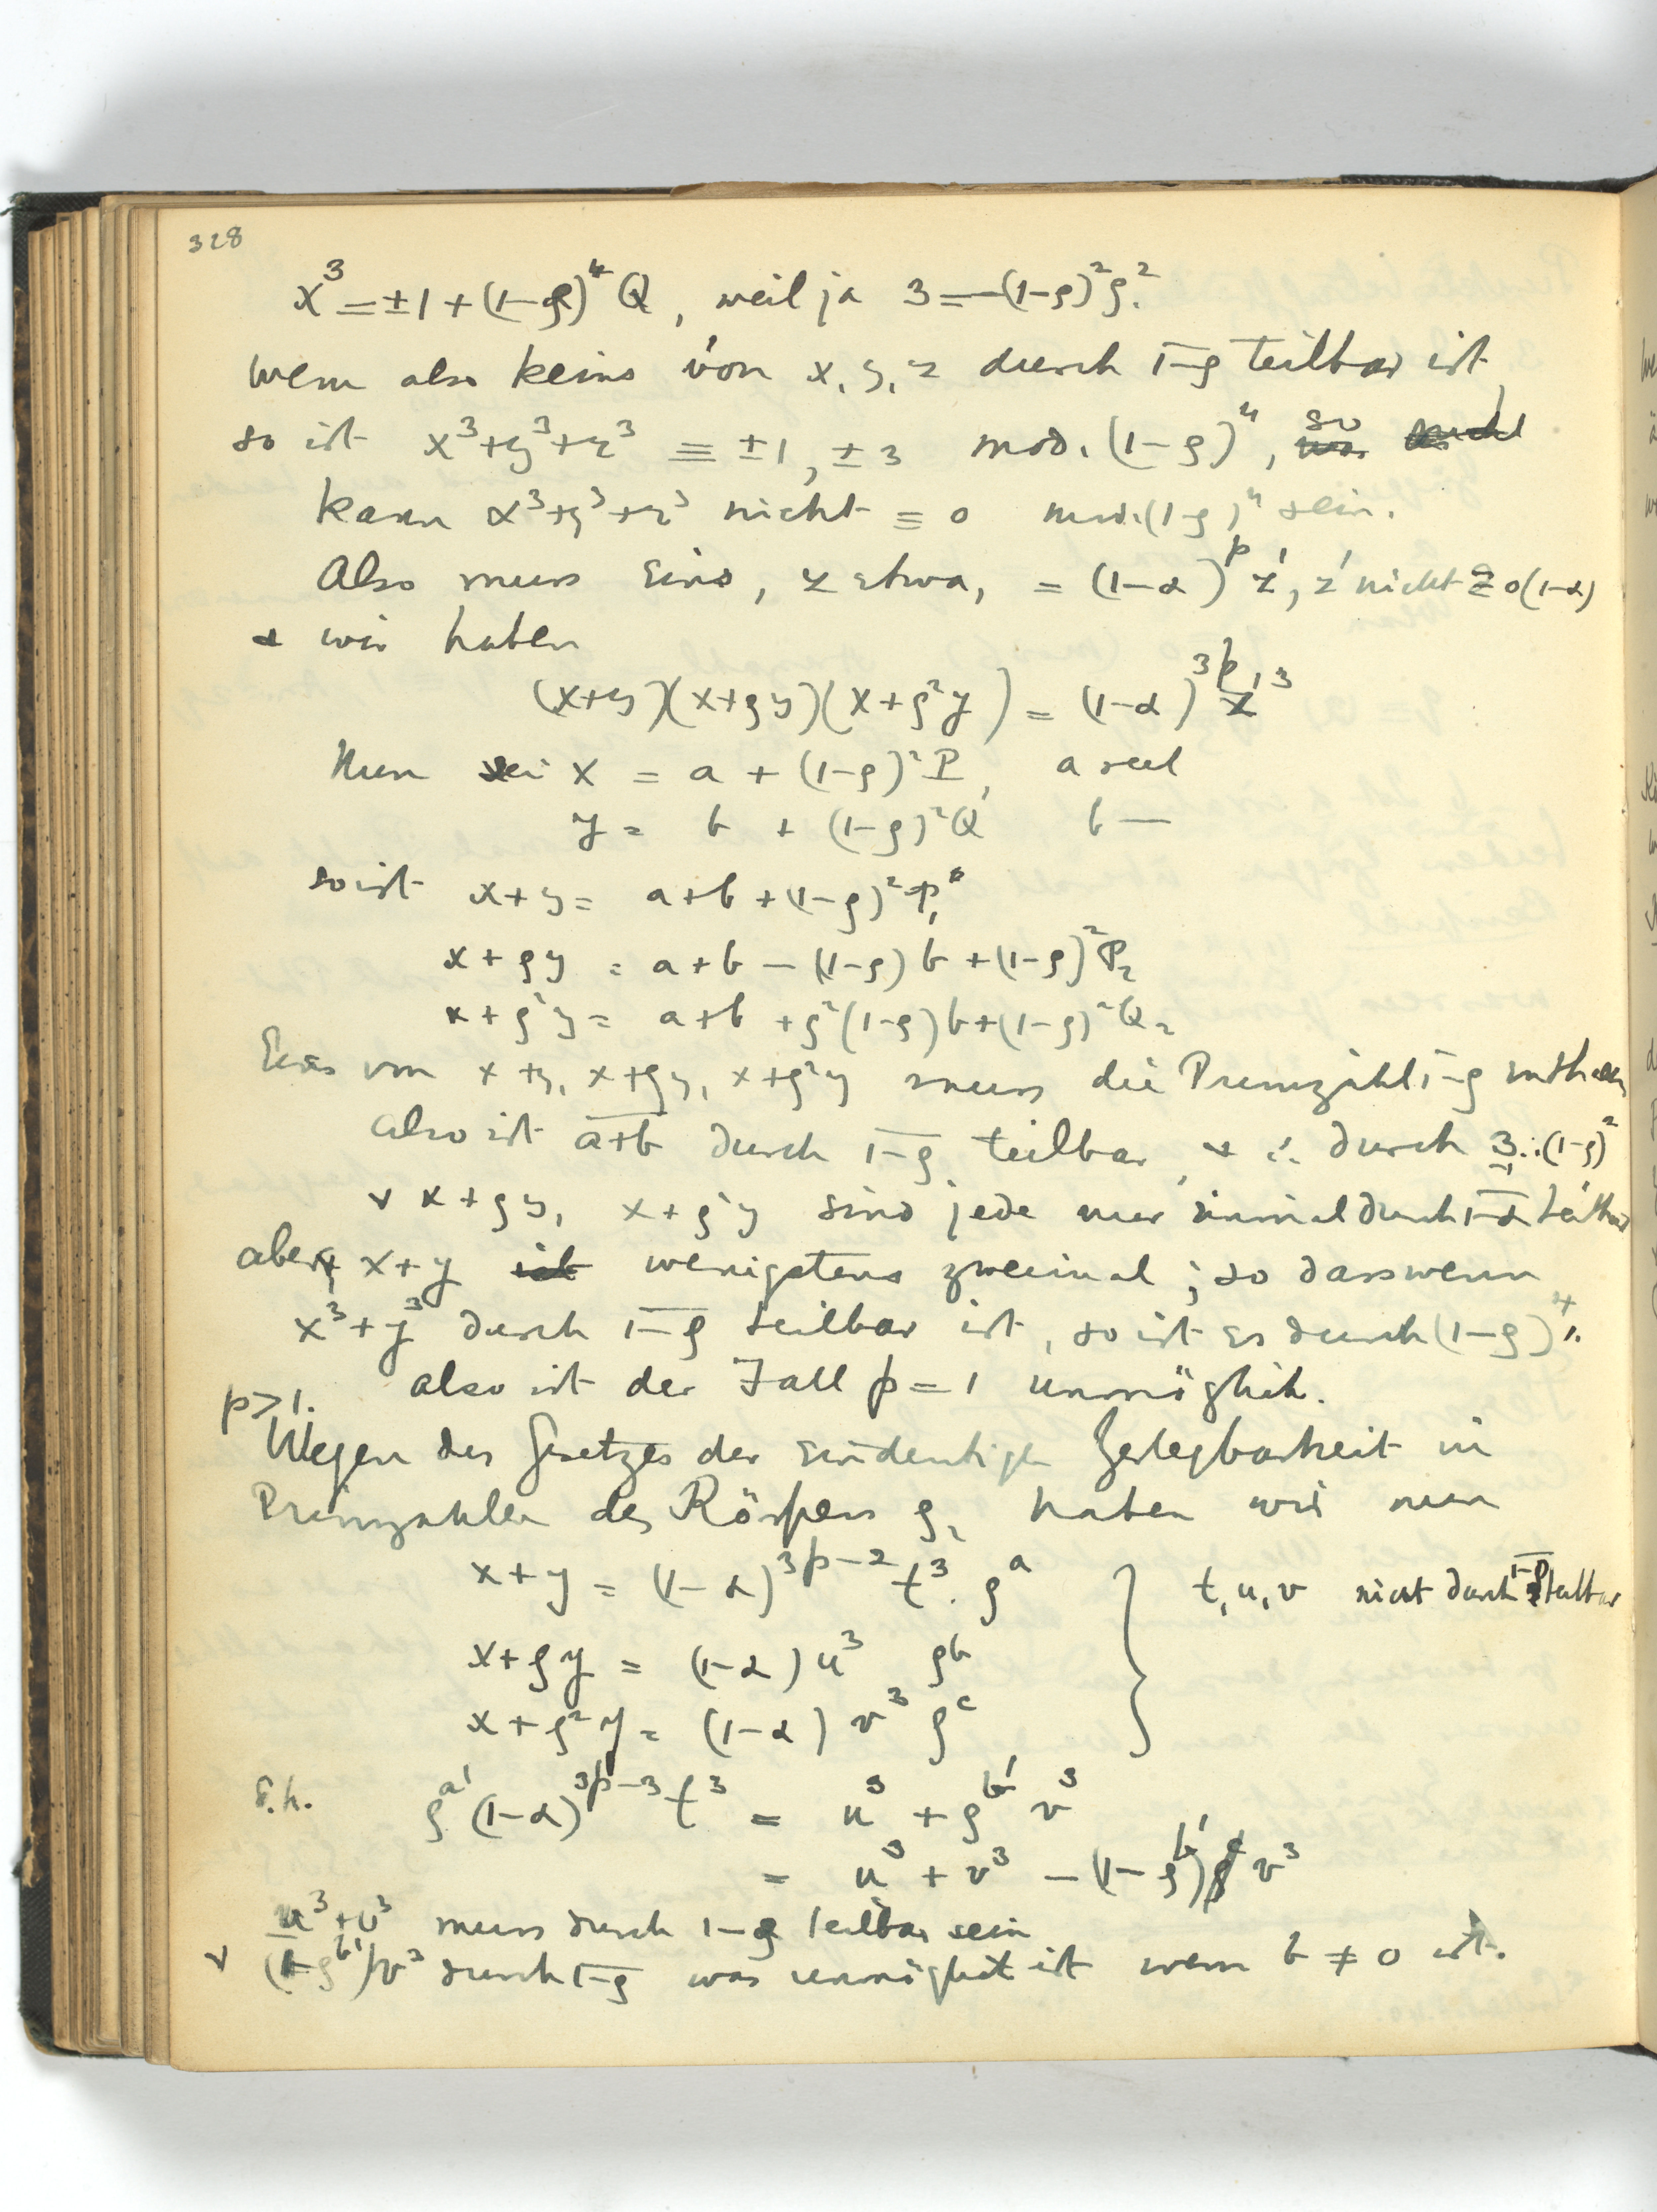 328
x³ = ±1 + (1-ρ)⁴ Q, weil ja 3 = -(1-ρ)²ρ².
Wenn also keins von x, y, z durch 1-ρ teilbar ist,
so ist x³+y³+z³ ≡ ±1, ±3 mod. (1-ρ)⁴, so
kann x³+y³+z³ nicht ≡ 0 mod. (1-ρ)⁴ sein.
Also muss eins, z etwa, = (1-α)^p z', z' nicht ≡ 0 (1-α)
& wir haben
(x+y)(x+ρy)(x+ρ²y) = (1-α)^{3p} z'³
Nun sei x = a + (1-ρ)² P, a reel
y = b + (1-ρ)² Q b —
so ist x+y = a+b + (1-ρ)² P₁
x+ρy = a+b - (1-ρ) b + (1-ρ)² P₂
x+ρ²y = a+b + ρ²(1-ρ) b + (1-ρ)² Q₂
Eins von x+y, x+ρy, x+ρ²y muss die Primzahl 1-ρ enthalten
also ist a+b durch 1-ρ teilbar, & ∴ durch 3 ∴ (1-ρ)²
& x+ρy, x+ρ²y sind jede nur einmal durch 1-α teilbar
aber x+y wenigstens zweimal; so dass wenn
x³+y³ durch 1-ρ teilbar ist, so ist es durch (1-ρ)⁴.
p>1. also ist der Fall p=1 unmöglich.
Wegen des Gesetzes der eindeutigen Zerlegbarkeit in
Primzahlen des Körpers ρ, haben wir nun
x+y = (1-α)^{3p-2} t³. ρ^a
t, u, v nicht durch 1-ρ teilbar
x+ρy = (1-α) u³ ρ^b
x+ρ²y = (1-α) v³ ρ^c
d.h. ρ^{a'} (1-α)^{3p-3} t³ = u³ + ρ^{b'} v³
= u³ + v³ - (1-ρ^{b'}) v³
u³+v³ muss durch 1-ρ teilbar sein
& (1-ρ^{b'})v³ durch 1-ρ was unmöglich ist wenn b ≠ 0 ist.